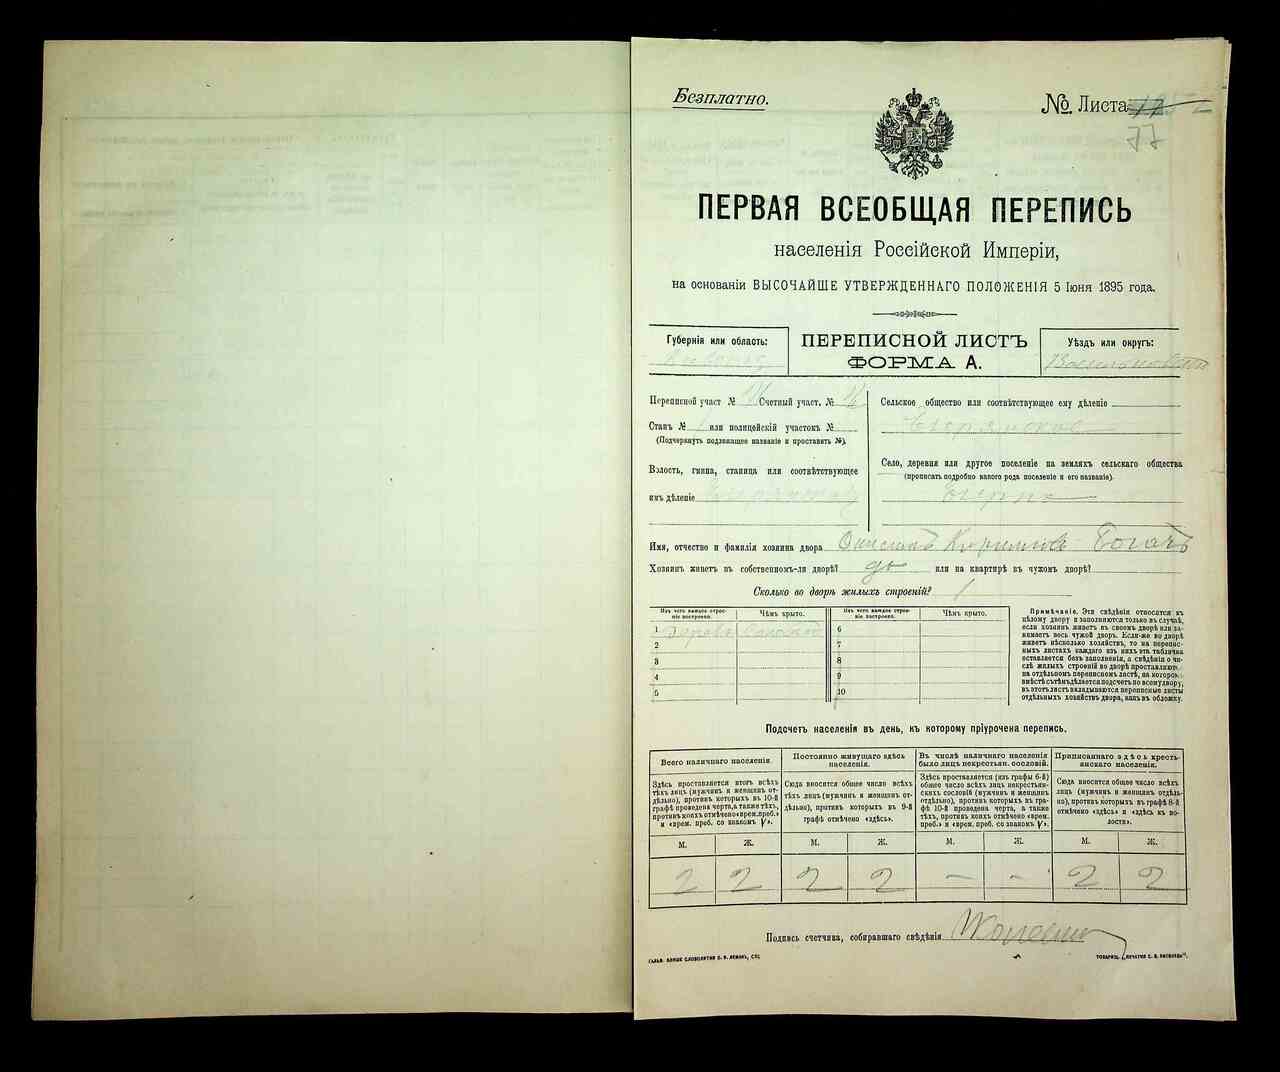 Безплатно.
№. Листа
77
ПЕРВАЯ ВСЕОБЩАЯ ПЕРЕПИСЬ
населенія Россійской Имперіи,
на основаніи ВЫСОЧАЙШЕ УТВЕРЖДЕННАГО ПОЛОЖЕНІЯ 5 Іюня 1895 года.
Губернія или область:
ПЕРЕПИСНОЙ ЛИСТЪ
ФОРМА А.
Уѣздъ или округъ:
Переписной участ № Счетный участ. №
Станъ № или полицейскій участокъ №
(Подчеркнуть подлежащее названіе и проставить №).
Волость, гмина, станица или соотвѣтствующее
имъ дѣленіе
Сельское общество или соотвѣтствующее ему дѣленіе
Село, деревня или другое поселеніе на земляхъ сельскаго общества
(прописать подробно какого рода поселеніе и его названіе).
Имя, отчество и фамилія хозяина двора
Хозяинъ живетъ въ собственномъ-ли дворѣ? да или на квартирѣ въ чужомъ дворѣ?
Сколько во дворѣ жилыхъ строеній? 1
Изъ чего каждое строеніе построено.
Чѣмъ крыто.
Изъ чего каждое строеніе построено.
Чѣмъ крыто.
1 6
2 7
3 8
4 9
5 10
Примѣчаніе. Эти свѣдѣнія относятся къ
цѣлому двору и заполняются только въ случаѣ,
если хозяинъ живетъ въ своемъ дворѣ или занимаетъ
весь чужой дворъ. Если-же во дворѣ
живетъ нѣсколько хозяйствъ, то на переписныхъ
листахъ каждаго изъ нихъ эта табличка
оставляется безъ заполненія, а свѣдѣнія о числѣ
жилыхъ строеній во дворѣ проставляются
на отдѣльномъ переписномъ листѣ, на которомъ
вмѣстѣ съ тѣмъ дѣлается подсчетъ по всему двору,
въ этотъ листъ вкладываются переписные листы
отдѣльныхъ хозяйствъ двора, какъ въ обложку.
Подсчетъ населенія въ день, къ которому пріурочена перепись.
Всего наличнаго населенія.
Здѣсь проставляется итогъ всѣхъ
тѣхъ лицъ (мужчинъ и женщинъ отдѣльно),
противъ которыхъ въ 10-й
графѣ проведена черта, а также тѣхъ,
противъ коихъ отмѣчено «врем. преб.»
и «врем. преб. со знакомъ V».
Постоянно живущаго здѣсь
населенія.
Сюда вносится общее число всѣхъ
тѣхъ лицъ (мужчинъ и женщинъ отдѣльно),
противъ которыхъ въ 9-й
графѣ отмѣчено «здѣсь».
Въ числѣ наличнаго населенія
было лицъ некрестьян. сословій.
Здѣсь проставляется (изъ графы 6-й)
общее число всѣхъ лицъ некрестьянскихъ
сословій (мужчинъ и женщинъ
отдѣльно), противъ которыхъ въ графѣ
10-й проведена черта, а также
тѣхъ, противъ коихъ отмѣчено «врем.
преб.» и «врем. преб. со знакомъ V».
Приписаннаго здѣсь крестьянскаго
населенія.
Сюда вносится общее число всѣхъ
тѣхъ лицъ (мужчинъ и женщинъ отдѣльно),
противъ которыхъ въ графѣ 8-й
отмѣчено «здѣсь» и «здѣсь къ волости».
М. Ж. М. Ж. М. Ж. М. Ж.
2 2 2 2 - - 2 2
Подпись счетчика, собиравшаго свѣдѣнія